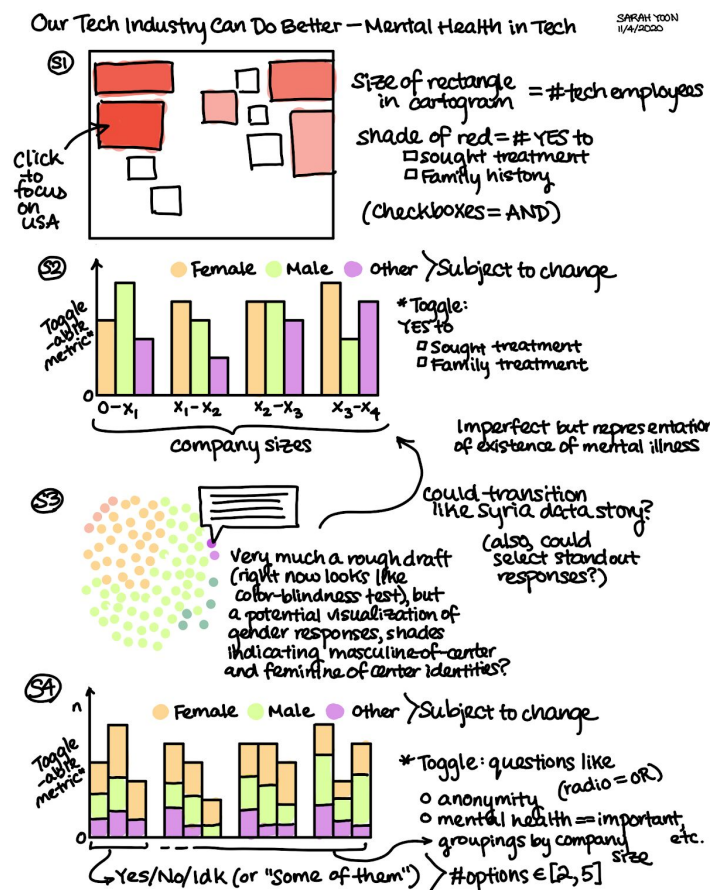 Our Tech Industry Can Do Better – Mental Health in Tech
SARAH YOON
11/4/2020
S1
Size of rectangle
in cartogram = # tech employees
shade of red = # YES to
sought treatment
Family history
(checkboxes = AND)
Click
to
focus
on
USA
S2
Female Male Other > Subject to change
Toggle
-able
metric*
*Toggle:
YES to
Sought treatment
Family treatment
0
0-x1 x1-x2 x2-x3 x3-x4
company sizes
Imperfect but representation
of existence of mental illness
S3
could transition
like Syria data story?
(also, could
select standout
responses?)
Very much a rough draft
(right now looks like
color-blindness test), but
a potential visualization of
gender responses, shades
indicating masculine-of-center
and feminine of center identities?
S4
n
Female Male Other > Subject to change
Toggle
-able
metric*
* Toggle: questions like
(radio = OR)
anonymity
mental health == important,
etc.
groupings by company
size
0
Yes/No/Idk (or "Some of them") > #options ∈ [2,5]